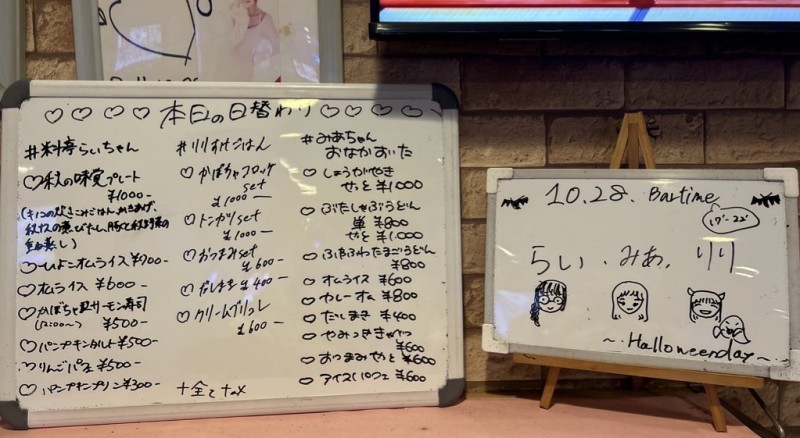 ♡♡♡♡ 本日の日替わり ♡♡♡♡
#料亭らいちゃん
♡秋の味覚プレート
¥1000-
(キノコの炊きこみごはん、
蒸し)
♡ひよこオムライス ¥700-
♡オムライス ¥600-
♡かぼちゃ型サーモン寿司
(12:00~) ¥500-
♡パンプキンタルト ¥500-
♡りんごパフェ ¥500-
♡パンプキンプリン ¥300-
#りりすけごはん
♡かぼちゃコロッケ
set
¥1000-
♡トンカツset
¥1000-
♡おつまみset
¥600-
♡だしまき ¥400-
♡クリームブリュレ
¥600-
+全てtax
#みあちゃん
おなかおいた
♡しょうがやき
せっと ¥1000
♡ぶたしゃぶうどん
単 ¥800
せっと ¥1000
♡ふわふわたまごうどん
¥800
♡オムライス ¥600
♡カレーオム ¥800
♡だしまき ¥400
♡やみつききゃべつ
¥600
♡おつまみせっと ¥600
♡アイスパフェ ¥600
10.28. Bartime
17-22
らい . みあ . りり
~.Halloweenday~